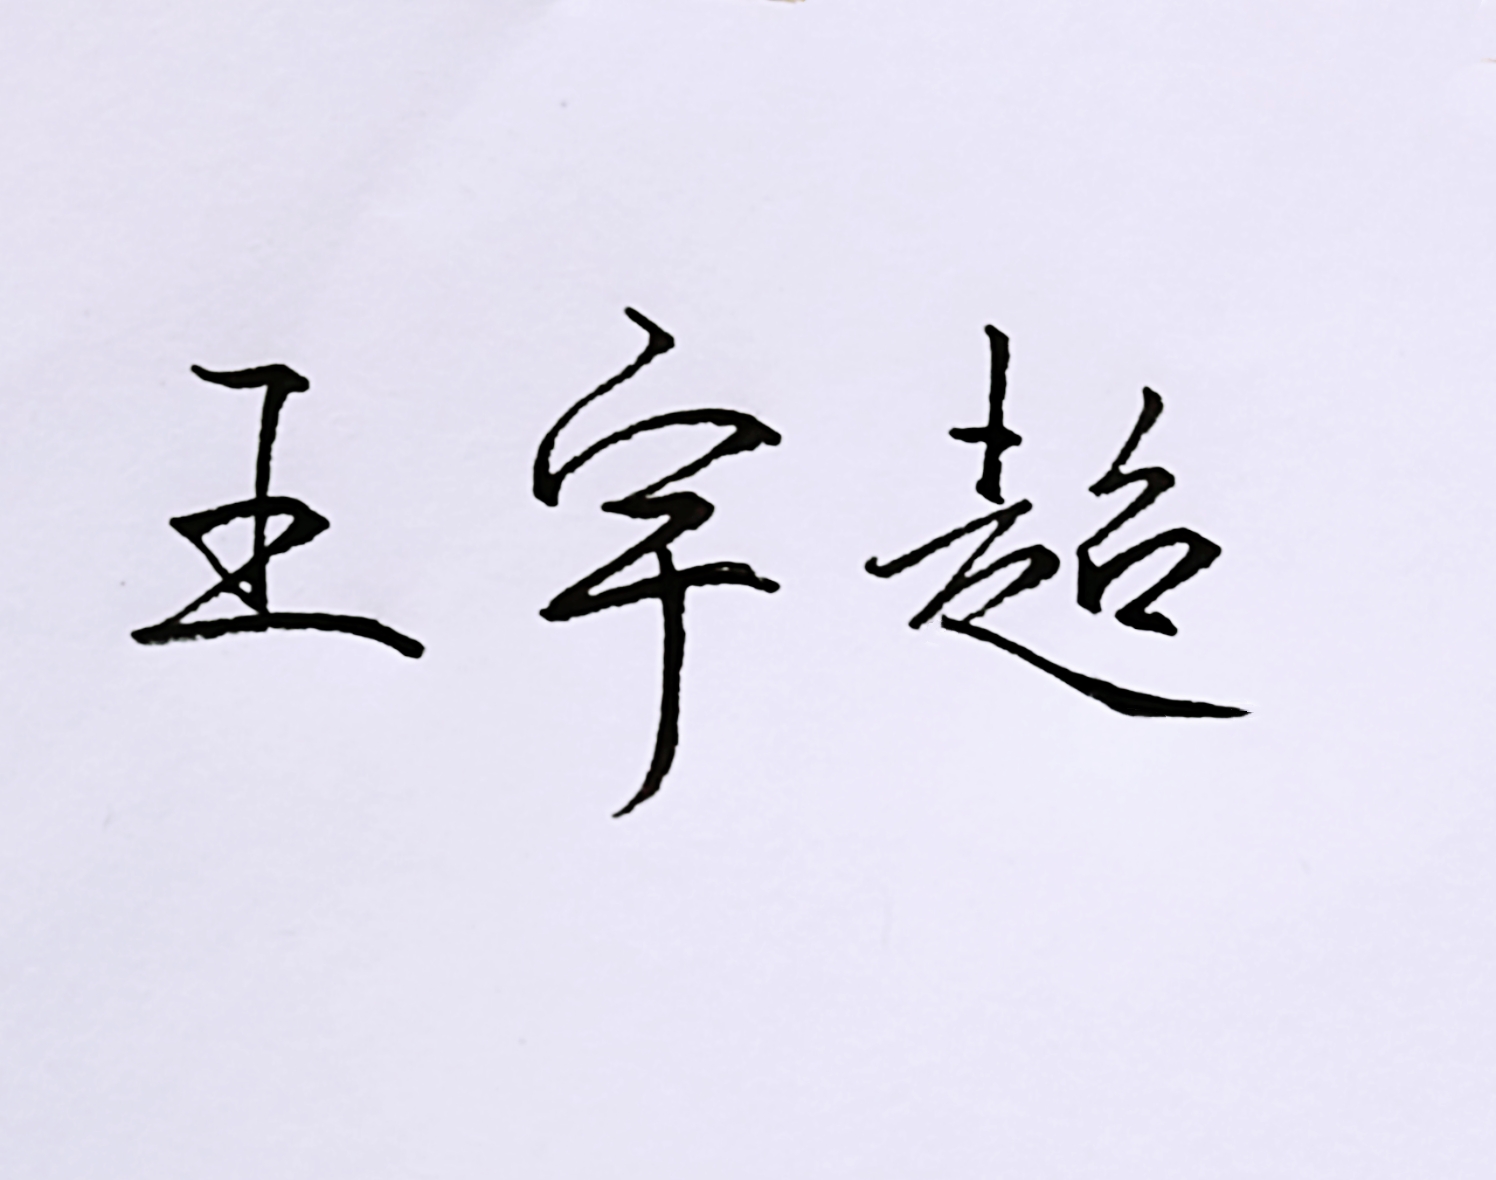 王宇超